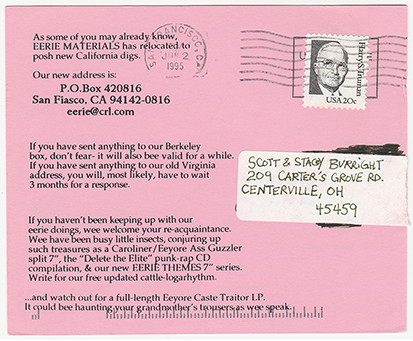 As some of you may already know,
EERIE MATERIALS has relocated to
posh new California digs.
Our new address is:
P.O.Box 420816
San Fiasco, CA 94142-0816
eerie@crl.com
If you have sent anything to our Berkeley
box, don't fear- it will also bee valid for a while.
If you have sent anything to our old Virginia
address, you will, most likely, have to wait
3 months for a response.
If you haven't been keeping up with our
eerie doings, wee welcome your re-acquaintance.
Wee have been busy little insects, conjuring up
such treasures as a Caroliner/Eeyore Ass Guzzler
split 7", the "Delete the Elite" punk-rap CD
compilation, & our new EERIE THEMES 7" series.
Write for our free updated cattle-logarhythm.
...and watch out for a full-length Eeyore Caste Traitor LP.
It could bee haunting your grandmother's trousers as wee speak.
SAN FRANCISCO, CA
JUN 2
1995
Harry S. Truman
USA 20c
SCOTT & STACY BURRIGHT
209 CARTER'S GROVE RD.
CENTERVILLE, OH
45459